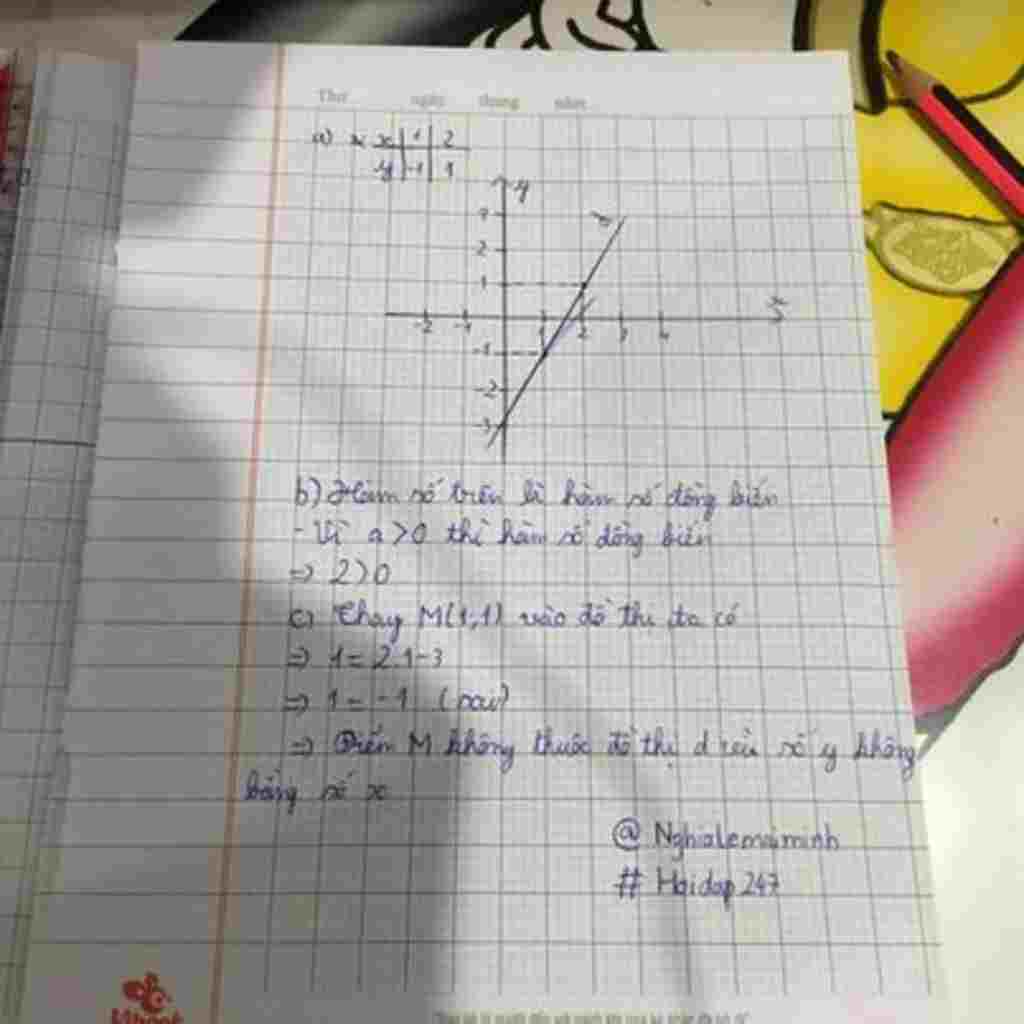 Thứ ngày tháng năm
a) x 1 2
y -1 1
y
3
d
2
1
x
-2 -1 1 2 3 4
-1
-2
-3
b) Hàm số trên là hàm số đồng biến
- Vì a > 0 thì hàm số đồng biến
=> 2 > 0
c) Thay M(1,1) vào đồ thị ta có
=> 1 = 2.1-3
=> 1 = -1 (sai)
=> Điểm M không thuộc đồ thị d số y không
bằng số x
@ Nghialemaiminh
# Hoidap247